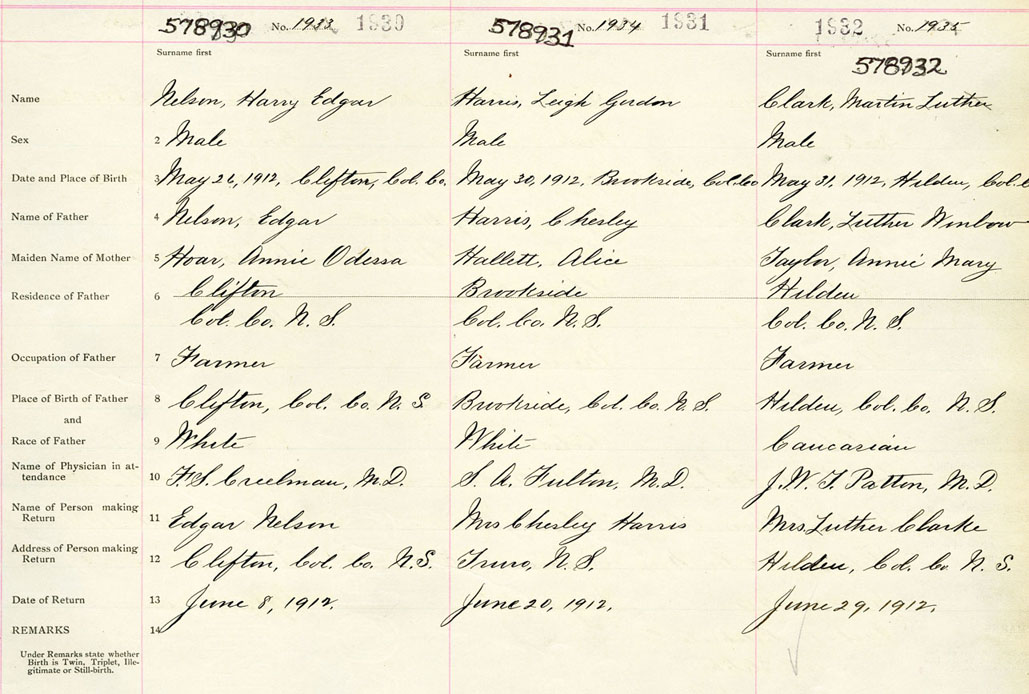 578930 No. 1933 1930 578931 No. 1934 1931 1932 No. 1935
Surname first Surname first Surname first 578932
Name Nelson, Harry Edgar Harris, Leigh Gordon Clark, Martin Luther
Sex 2 Male Male Male
Date and Place of Birth 3 May 26, 1912, Clifton, Col. Co. May 30, 1912, Brookside, Col. Co May 31, 1912, Hilden, Col. C
Name of Father 4 Nelson, Edgar Harris, Chesley Clark, Luther Winbow
Maiden Name of Mother 5 Hoar, Annie Odessa Hallett, Alice Taylor, Annie Mary
Residence of Father 6 Clifton Brookside Hilden
Col. Co. N. S. Col. Co. N. S. Col. Co. N. S.
Occupation of Father 7 Farmer Farmer Farmer
Place of Birth of Father 8 Clifton, Col. Co. N. S Brookside, Col. Co. N. S. Hilden, Col. Co. N. S.
and
Race of Father 9 White White Caucasian
Name of Physician in at-
tendance 10 F. S. Creelman, M.D. S. A. Fulton, M.D. J. W. T. Patton, M.D.
Name of Person making
Return 11 Edgar Nelson Mrs Chesley Harris Mrs. Luther Clarke
Address of Person making
Return 12 Clifton, Col. Co. N.S. Truro, N. S. Hilden, Col. Co. N. S.
Date of Return 13 June 8, 1912. June 20, 1912. June 29, 1912.
REMARKS 14
Under Remarks state whether
Birth is Twin, Triplet, Ille-
gitimate or Still-birth.